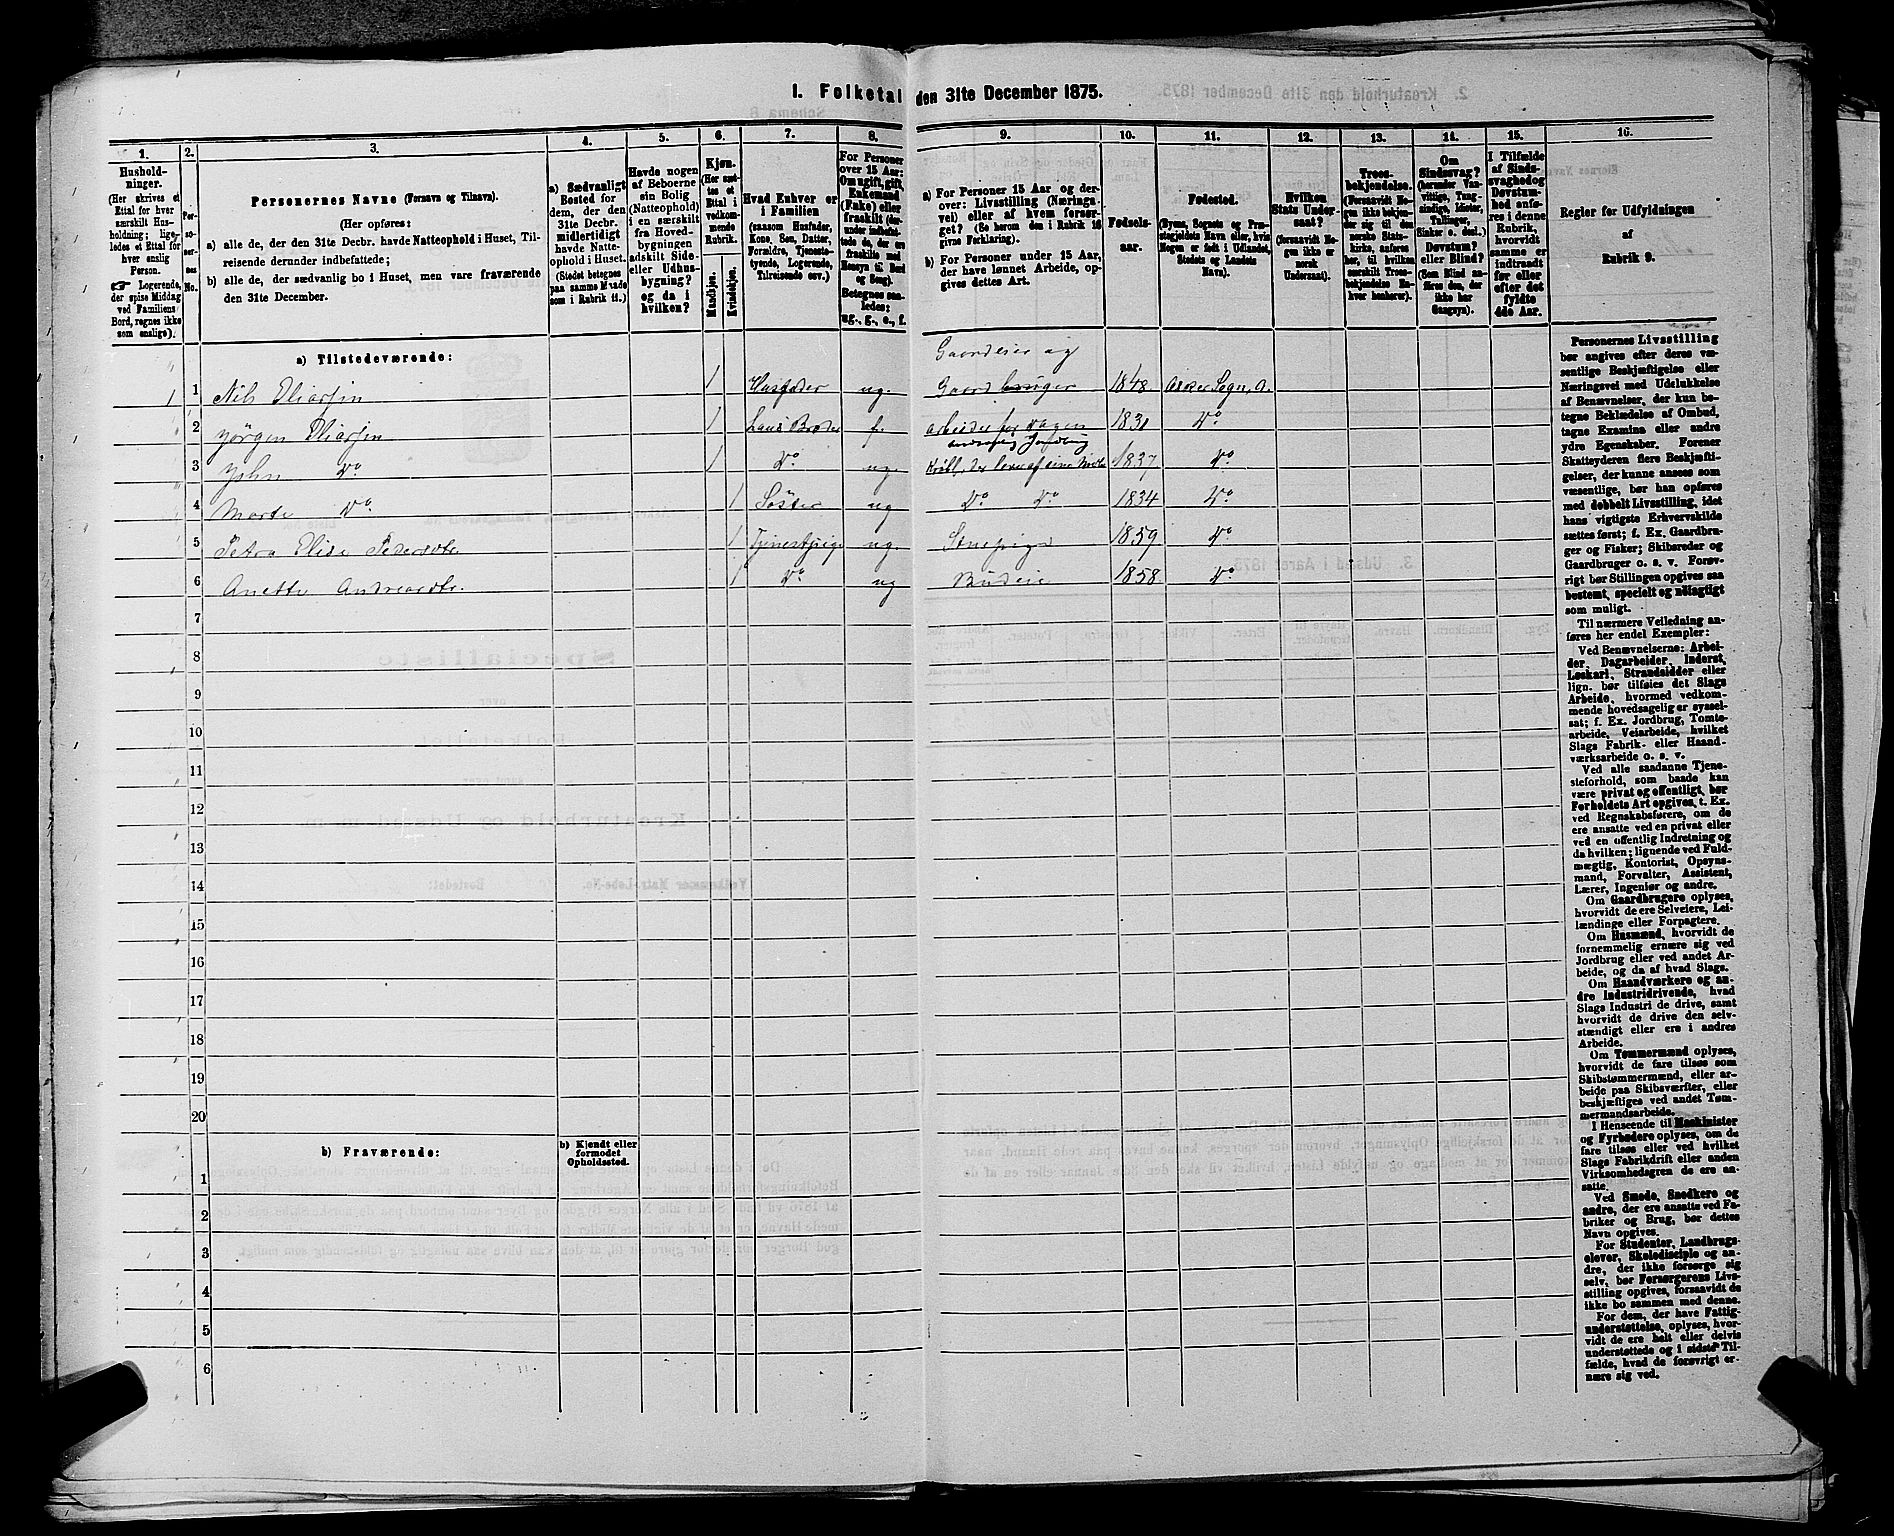 I. Folketal den 31te December 1875.
1. 2. 3. 4. 5. 6. 7. 8. 9. 10. 11. 12. 13. 14. 15. 16.
Husholdninger.
(Her skrives et
Ettal for hver
særskilt Husholdning; ligeledes et Ettal for
hver enslig
Person.
☞ Logerende,
der spise Middag
ved Familiens
Bord, regnes ikke
som enslige).
Personernes No.
Personernes Navne (Fornavn og Tilnavn).
(Her opføres:
a) alle de, der den 31te Decbr. havde Natteophold i Huset, Tilreisende derunder indbefattede;
b) alle de, der sædvanlig bo i Huset, men vare fraværende
den 31te December.
a) Sædvanligt
Bosted for
dem, der den
31te Decbr.
midlertidigt
havde Natteophold i Huset.
(Stedet betegnes
paa samme Maade
som i Rubrik 11.)
Havde nogen
af Beboerne
sin Bolig
(Natteophold)
i en særskilt
fra Hovedbygningen
adskilt Side- eller Udhusbygning?
og da i
hvilken?
Kjøn.
(Her sættes et
Ettal i
vedkommende
Rubrik.
Mandkjøn.
Kvindekjøn.
Hvad Enhver er
i Familien
(saasom Husfader,
Kone, Søn, Datter,
Forældre, Tjenestetyende, Logerende,
Tilreisende osv.)
For Personer
over 15 Aar:
Om ugift, gift,
Enkemand
(Enke) eller
fraskilt (derunder indbefattede de, der ere
fraskilte med
Hensyn til Bord
og Seng).
Betegnes saaledes:
ug., g., e., f.
a) For Personer 15 Aar og derover: Livsstilling (Næringsvei) eller af hvem forsørget? (Se herom den i Rubrik 16
givne Forklaring).
b) For Personer under 15 Aar,
der have lønnet Arbeide, opgives dettes Art.
Fødselsaar.
Fødested.
(Byens, Sognets og Præstegjældets Navn eller, hvis
Nogen er født i Udlandet,
Stedets og Landets
Navn).
Hvilken
Stats Undersaat?
(forsaavidt Nogen ikke er
norsk
Undersaat).
Troesbekjendelse.
(Forsaavidt Nogen ikke bekjender sig til den
norske Statskirke, anføres
her, til hvilken
særskilt Troesbekjendelse Enhver henhører).
Om
Sindssvag?
(herunder Vanvittige, Tungsindige, Idioter,
Tullinger,
Sinker o. desl.)
Døvstum?
eller Blind?
(Som Blind anføres den, der
ikke har
Gangsyn).
I Tilfælde
af Sindssvaghed og
Døvstumhed anføres i denne
Rubrik,
hvorvidt
samme er
indtraadt
før eller
efter det
fyldte
4de Aar.
Regler for Udfyldningen
af
Rubrik 9.
a) Tilstedeværende:
Gaardeier og
1 1 Nils Eliassen 1 Husfader ug. Gaardbruger 1848 Asker Sogn, A.
2 Jörgen Eliassen 1 f. 1831 Do
3 John Do 1 Do ug. 1837 Do
4 Marte Do 1 Söster ug Do Do 1834 Do
5 Petra Elise Pedersdtr. 1 Tjenestpige ug. Stuepige 1859 Do
6 Anette Andreasdtr. 1 Do ug Budeie 1858 Do
7
8
9
10
11
12
13
14
15
16
17
18
19
20
b) Fraværende:
b) Kjendt eller
formodet
Opholdssted.
1
2
3
4
5
6
Personernes Livsstilling
bør angives efter deres væsentlige Beskjæftigelse eller
Næringsvei med Udelukkelse
af Benævnelser, der kun betegne Beklædelse af Ombud,
tagne Examina eller andre
ydre Egenskaber. Forener
Skatteyderen flere Beskjæftigelser, der kunne ansees som
væsentlige, bør han opføres
med dobbelt Livsstilling, idet
hans vigtigste Erhvervskilde
sættes først; f. Ex. Gaardbruger og Fisker; Skibsreder og
Gaardbruger o. s. v. Forøvrigt bør Stillingen opgives saa
bestemt, specielt og nøiagtigt
som muligt.
Til nærmere Veiledning anføres her endel Exempler:
Ved Benævnelserne: Arbeider, Dagarbeider, Inderst,
Løskarl, Strandsidder eller
lign. bør tilføies det Slags
Arbeide, hvormed vedkommende hovedsagelig er sysselsat; f. Ex. Jordbrug, Tomtearbeide, Veiarbeide, hvilket
Slags Fabrik- eller Haandværksarbeide o. s. v.
Ved alle saadanne Tjenesteforhold, som baade kan
være privat og offentligt, bør
Forholdets Art opgives, t. Ex.
ved Regnskabsførere, om de
ere ansatte ved en privat eller
ved en offentlig Indretning og
da hvilken; lignende ved Fuldmægtig, Kontorist, Opsynsmand, Forvalter, Assistent,
Lærer, Ingeniør og andre.
Om Gaardbrugere oplyses,
hvorvidt de ere Selveiere, Leilændinge eller Forpagtere.
Om Husmænd, hvorvidt de
fornemmelig ernære sig ved
Jordbrug eller ved andet Arbeide, og da af hvad Slags.
Om Haandværkere og andre Industridrivende, hvad
Slags Industri de drive, samt
hvorvidt de drive den selvstændigt eller ere i andres
Arbeide.
Om Tømmermænd oplyses,
hvorvidt de fare tilsøs som
Skibstømmermænd, eller arbeide paa Skibsværfter, eller
beskjæftiges ved andet Tømmermandsarbeide.
I Henseende til Maskinister
og Fyrbødere oplyses, om de
fare tilsøs eller ved hvilket
Slags Fabrikdrift eller anden
Virksomhedsgren de ere ansatte.
Ved Smede, Snedkere og
andre, der ere ansatte ved Fabriker og Brug, bør dettes
Navn opgives.
For Studenter, Landbrugselever, Skoledisciple og andre, der ikke forsørge sig
selv, bør Forsørgerens Livsstilling opgives, forsaavidt de
ikke bo sammen med denne.
For dem, der have Fattigunderstøttelse, oplyses, hvorvidt de ere helt eller delvis
understøttede og i sidste Tilfælde, hvad de forøvrigt ernære sig ved.